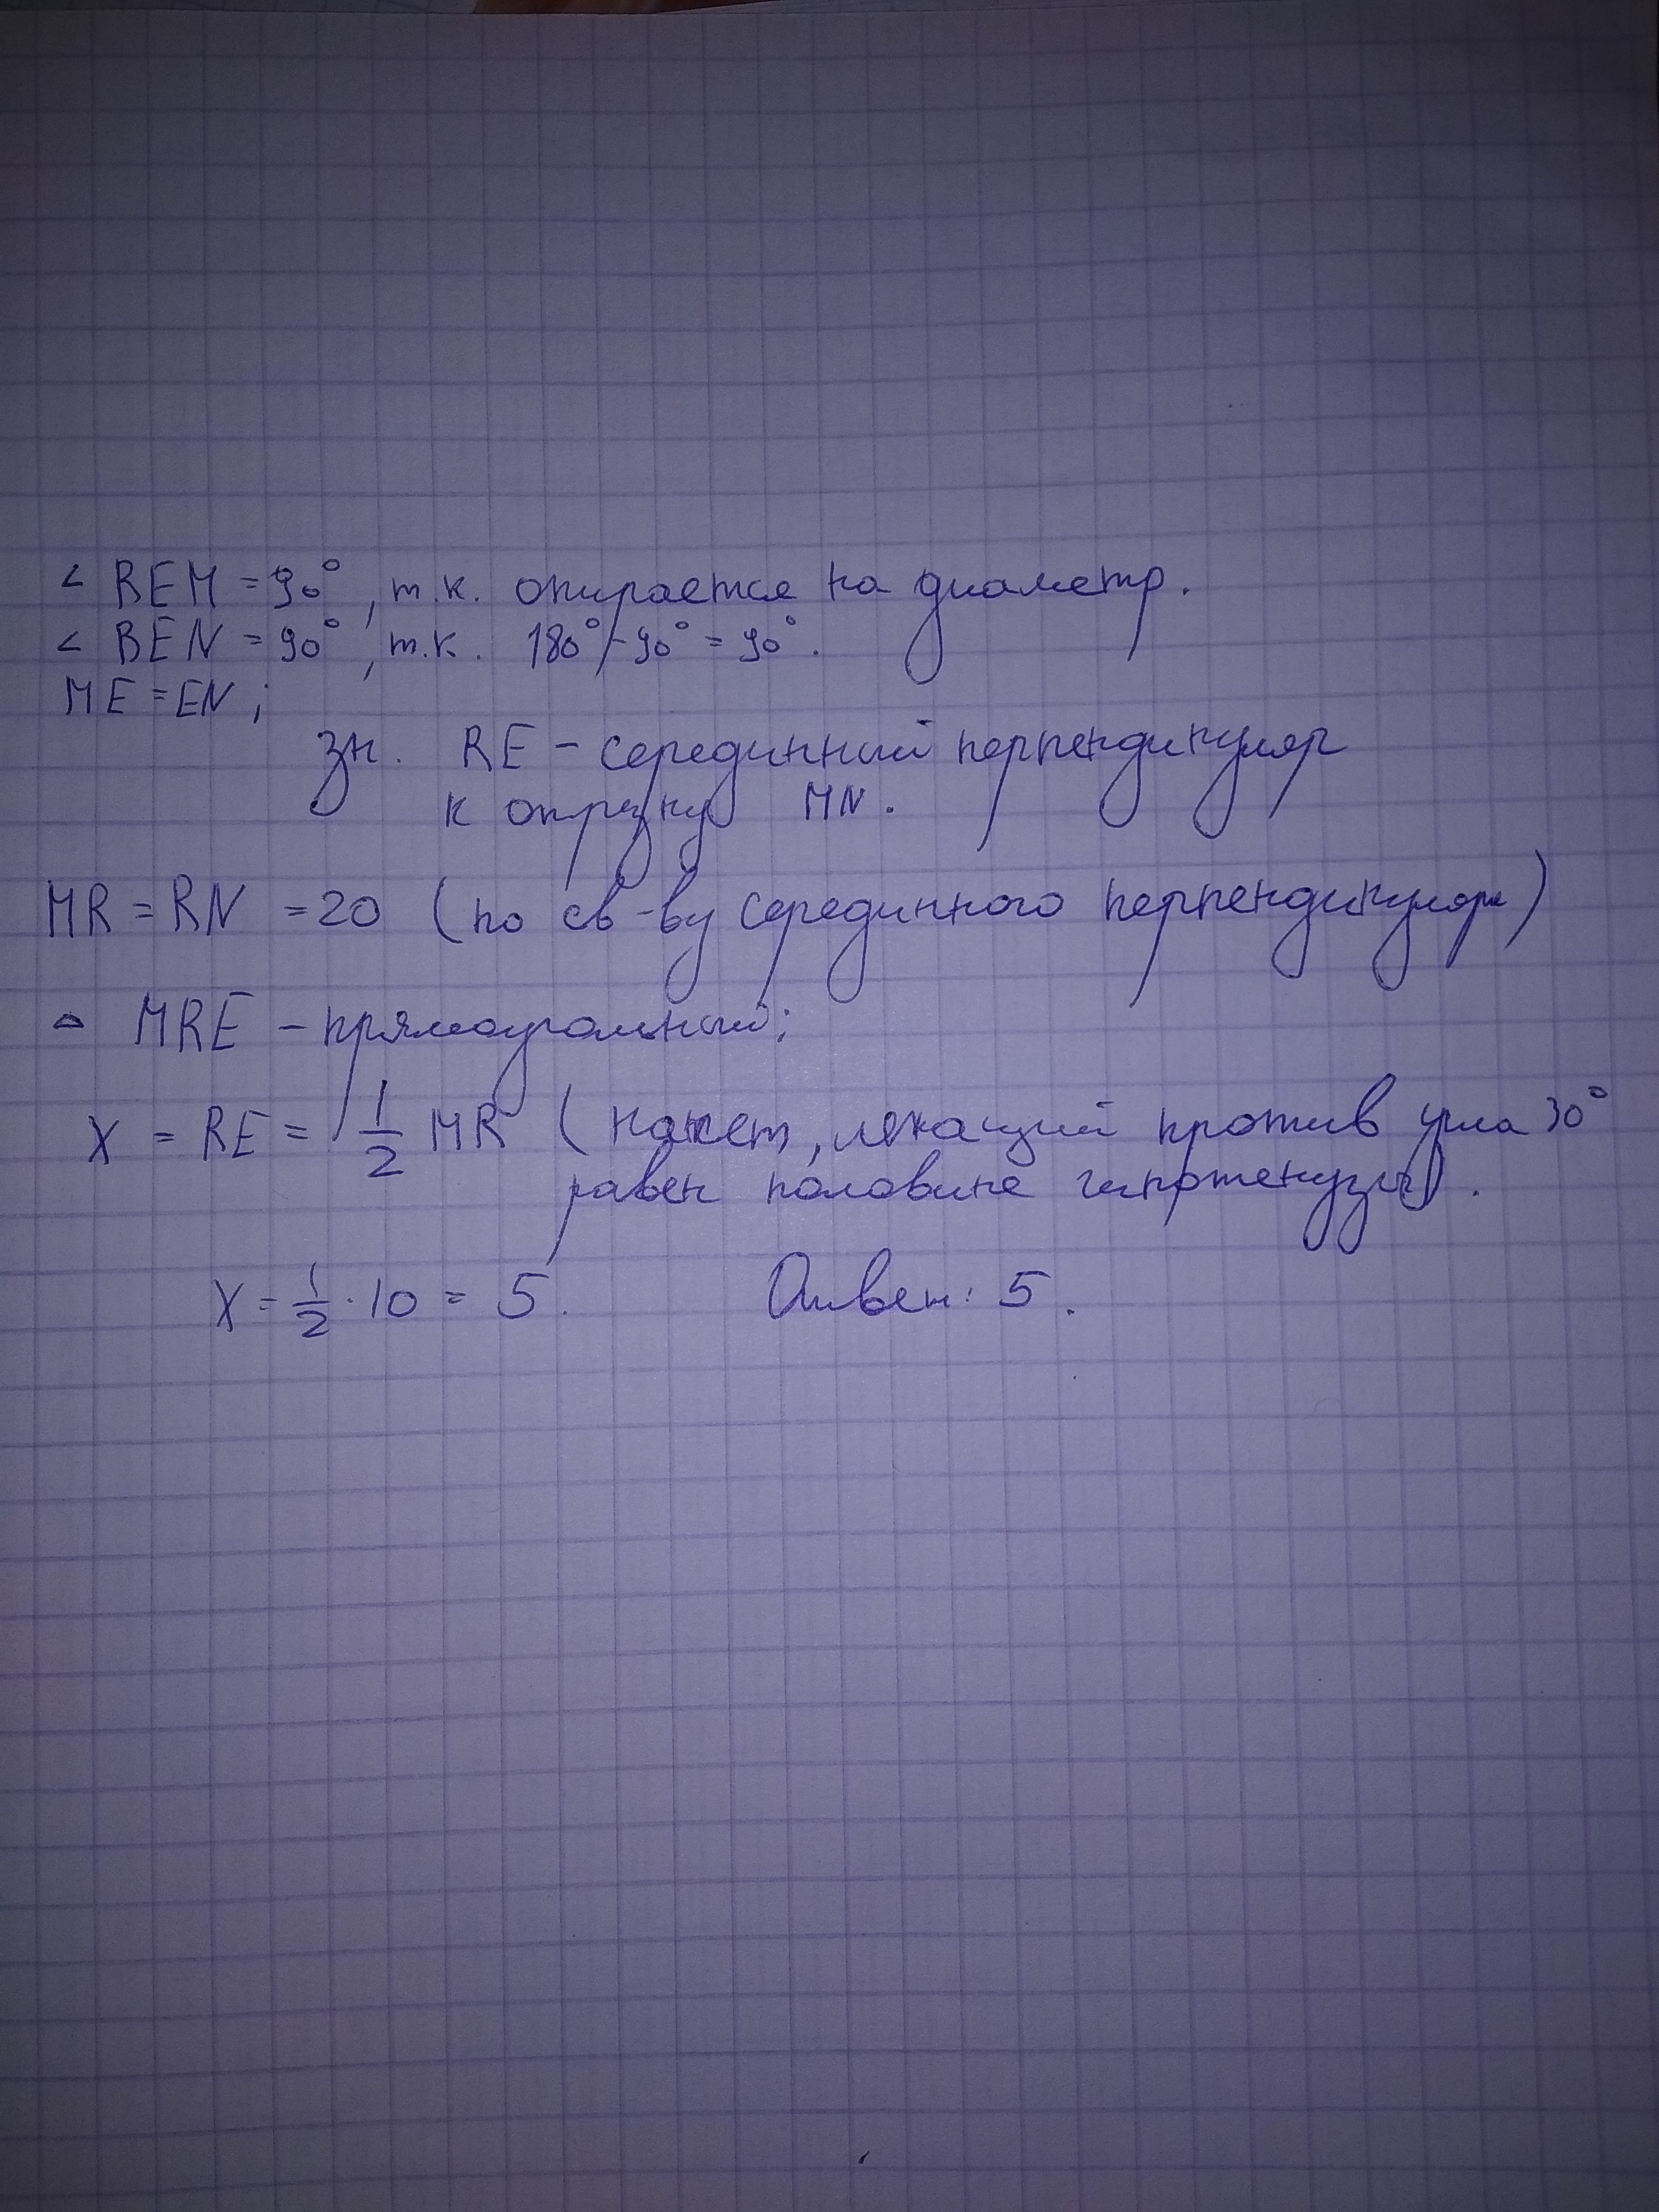 ∠ REM = 90°, т.к. опирается на диаметр.
∠ BEN = 90°, т.к. 180° - 90° = 90°.
ME = EN;
зн. RE – серединный перпендикуляр
к отрезку MN.
MR = RN = 20 (по св-ву серединного перпендикуляра)
△ MRE – прямоугольный;
X = RE = 1/2 MR (катет, лежащий против угла 30°
равен половине гипотенузы).
X = 1/2 · 10 = 5. Ответ: 5.